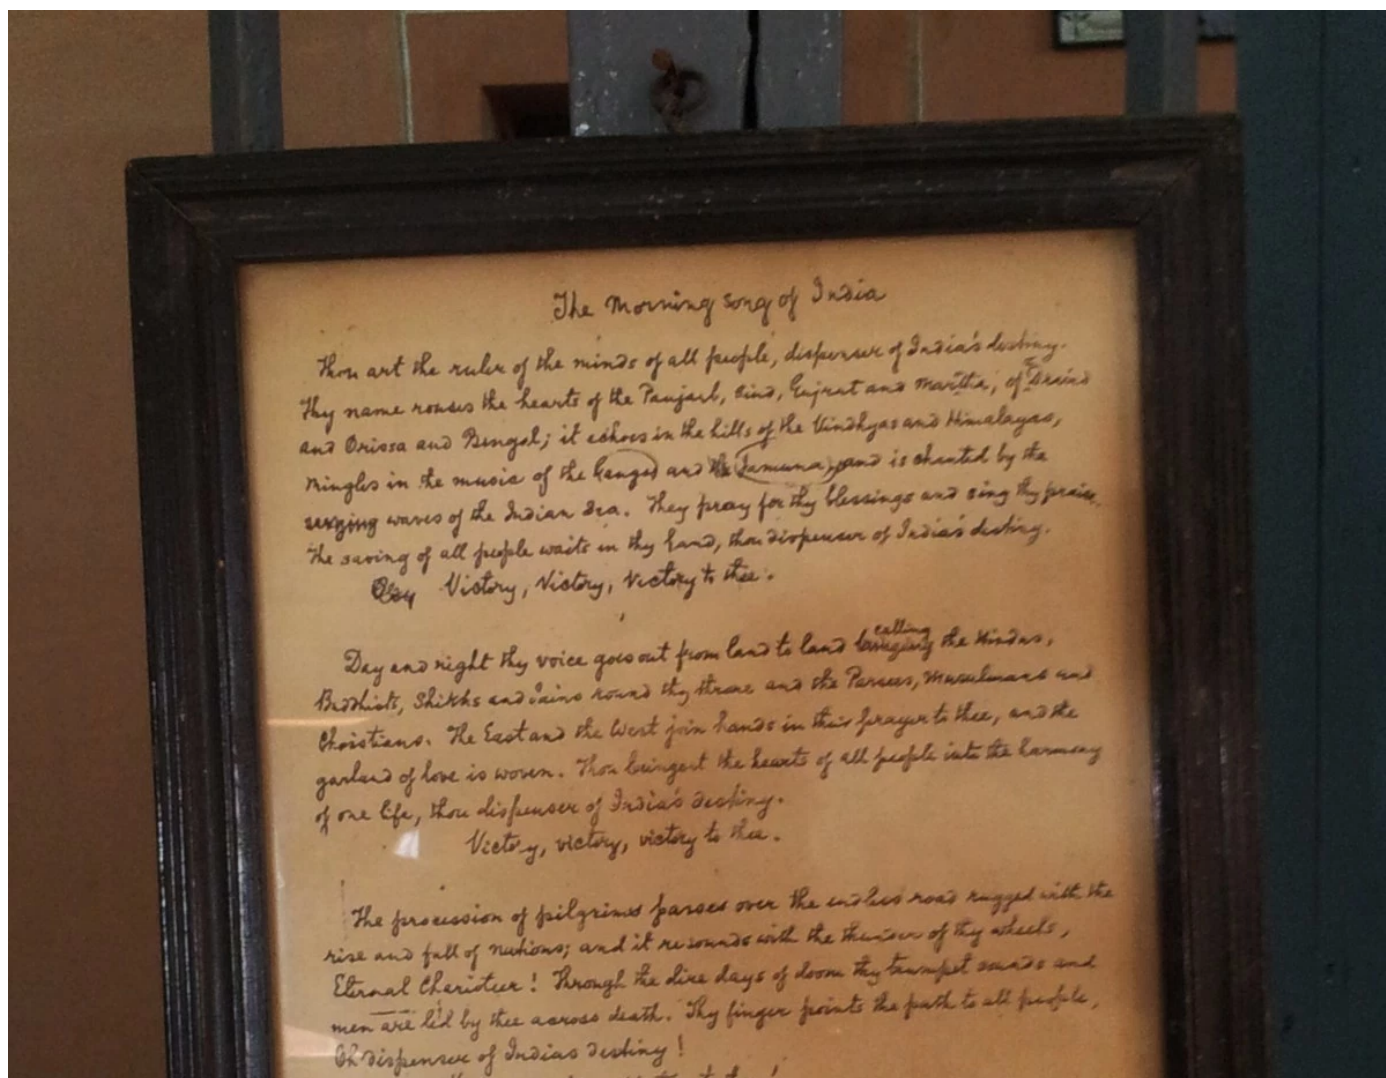 The Morning song of India
Thou art the ruler of the minds of all people, dispenser of India's destiny.
Thy name rouses the hearts of the Panjaub, Sind, Gujrat and Maratha, of
and Orissa and Bengal; it echoes in the hills of the Vindhyas and Himalayas,
mingles in the music of the Ganges and the Jamuna and is chanted by the
waves of the Indian Sea. They pray for thy blessings and sing thy praise.
The saving of all people waits in thy hand, thou dispenser of India's destiny.
Victory, Victory, Victory to thee.
Day and night thy voice goes out from land to land calling the Hindus,
Buddhists, Shikhs and Jains round thy throne and the Parsees, Musulmans and
Christians. The East and the West join hands in their prayer to thee, and the
garland of love is woven. Thou bringest the hearts of all people into the harmony
of one life, thou dispenser of India's destiny.
Victory, victory, victory to thee.
The procession of pilgrims passes over the endless road rugged with the
rise and fall of nations; and it resounds with the thunder of thy wheels,
Eternal Charioteer! Through the dire days of doom thy trumpet sounds and
men are led by thee across death. Thy finger points the path to all people,
Oh dispenser of India's destiny!